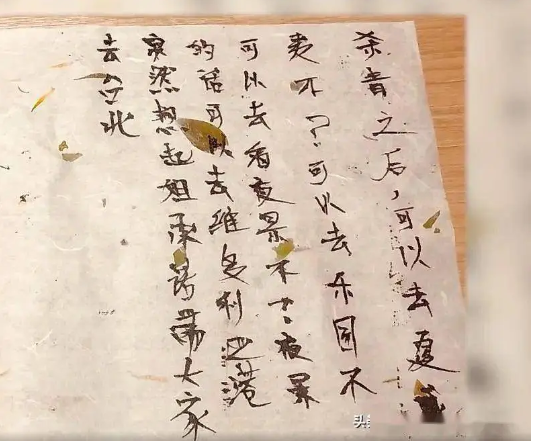 杀青之后,可以去夏
夷不?可以去乐园不
可以去看夜景不?夜景
的话可以去维多利亚港
突然想起姐大家
去台北
头